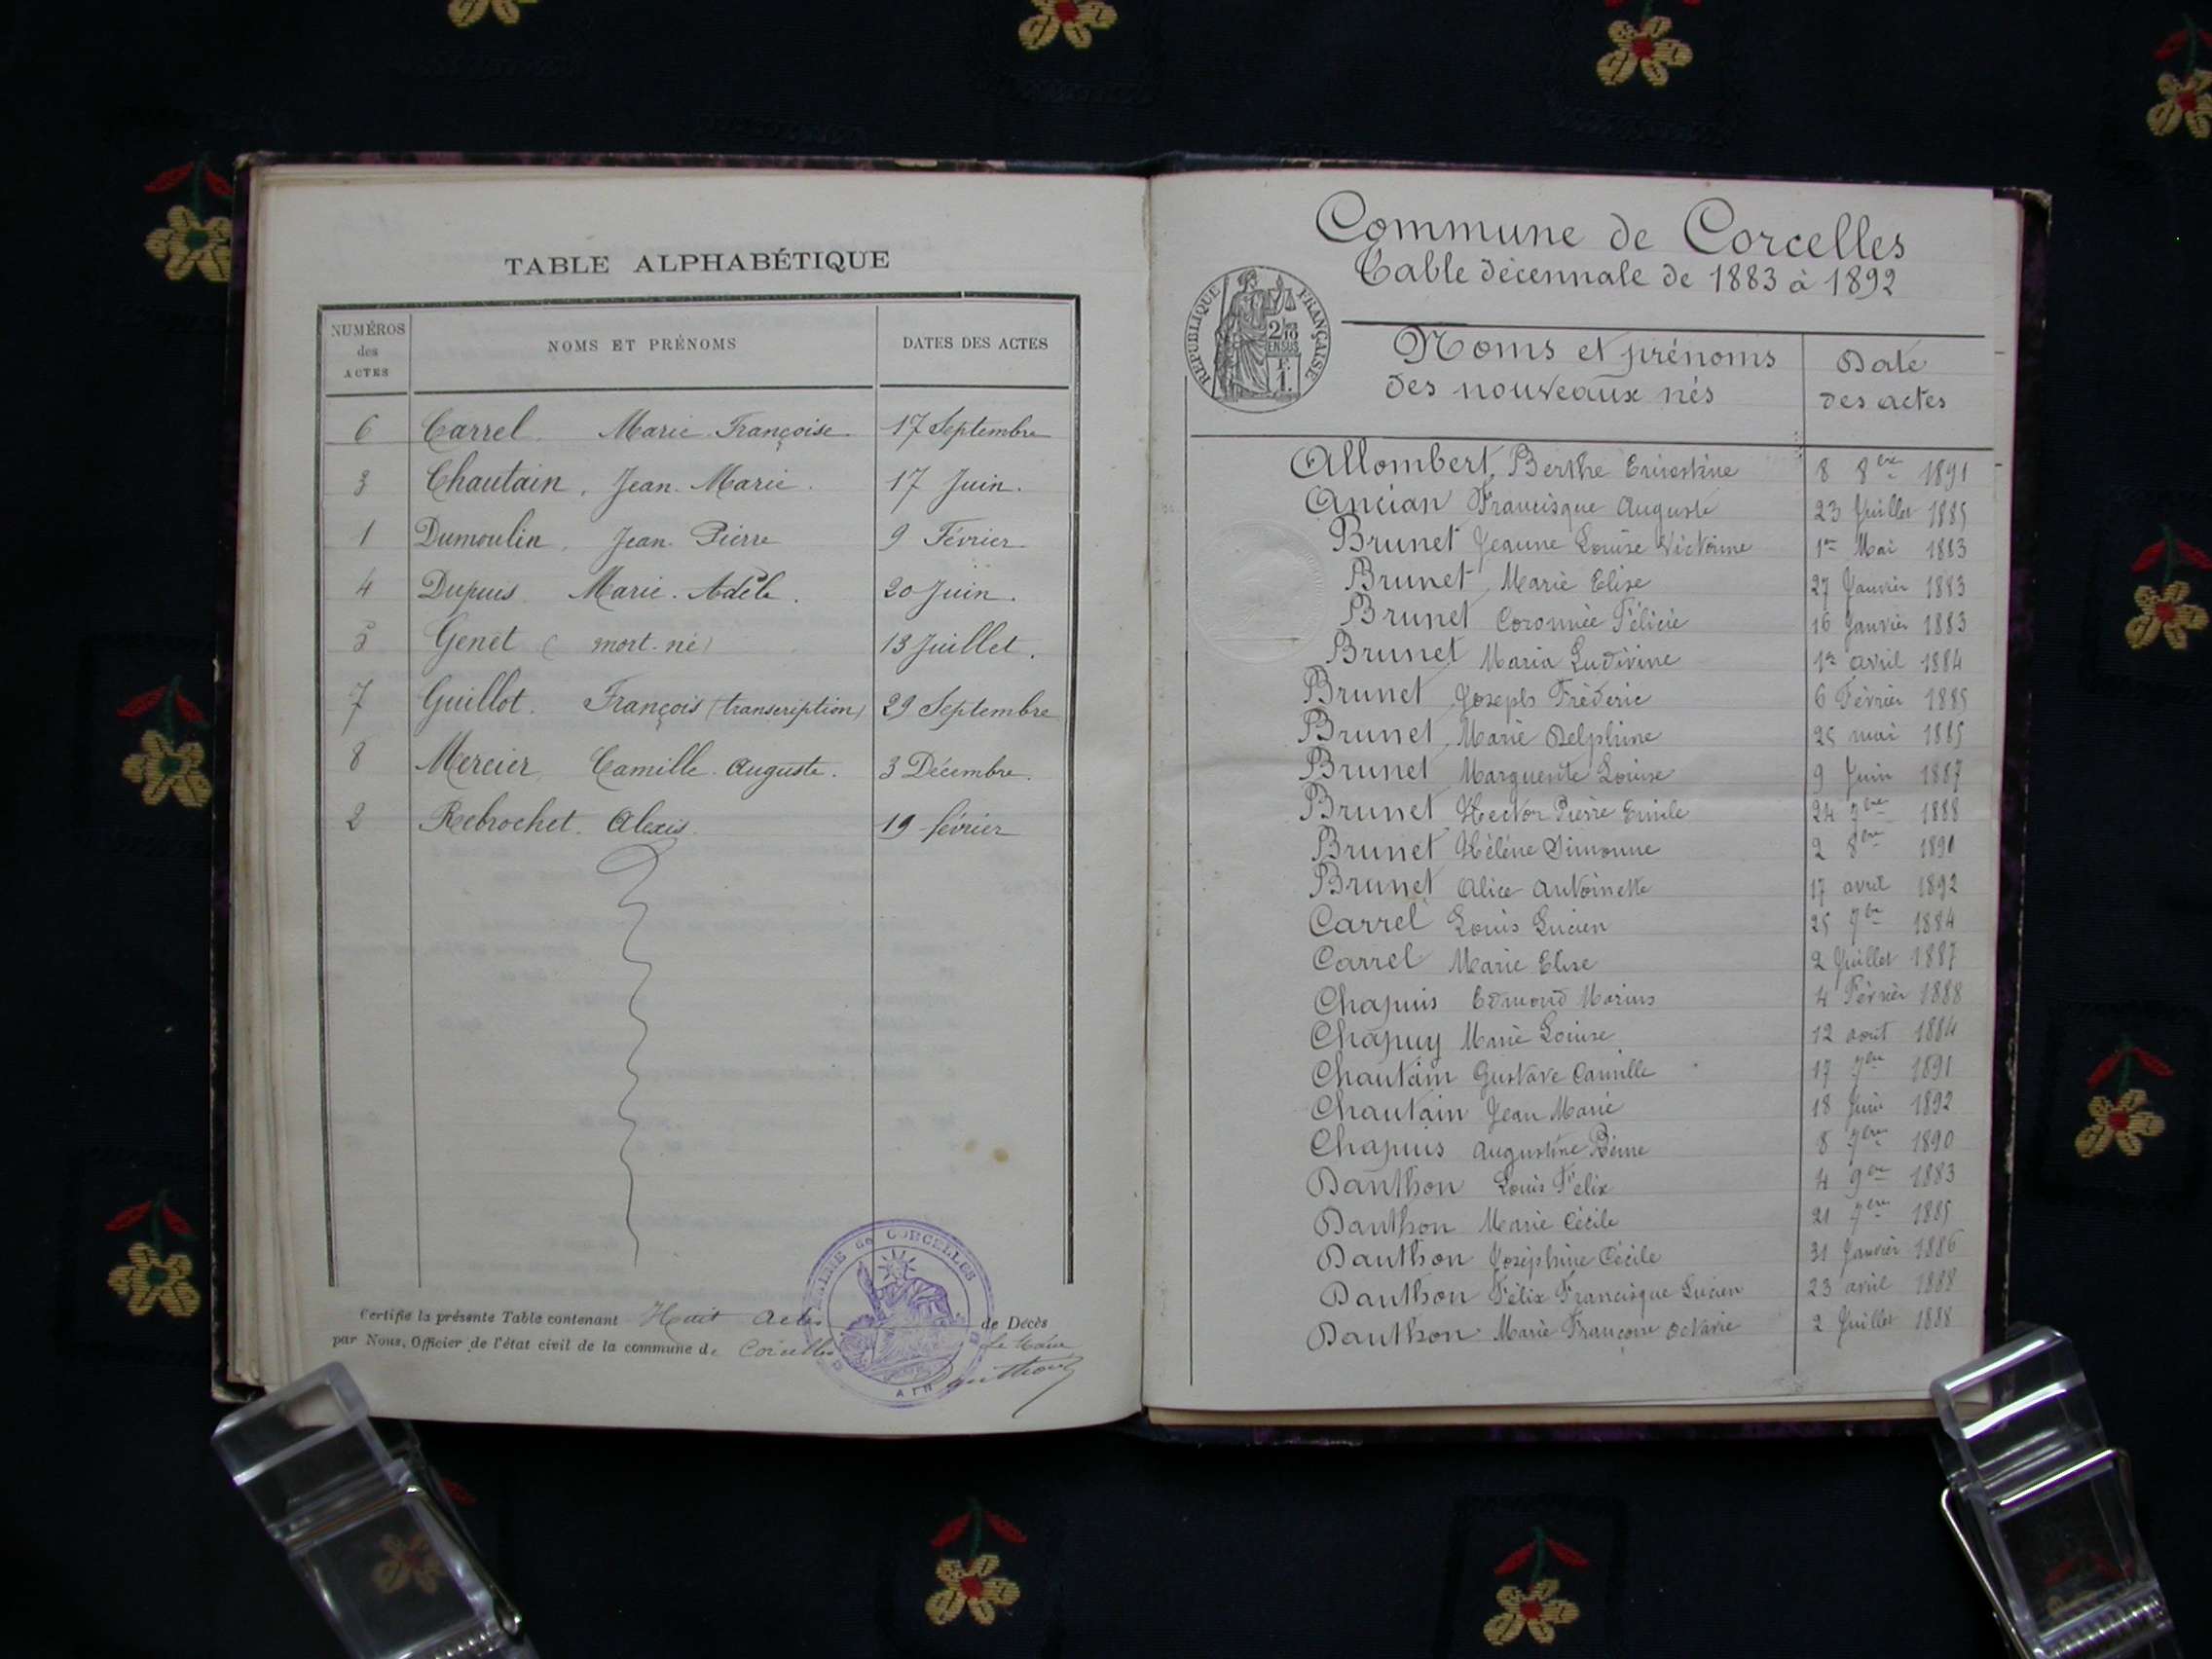 TABLE ALPHABÉTIQUE
NUMÉROS des ACTES NOMS ET PRÉNOMS DATES DES ACTES
6 Carrel. Marie Françoise. 17 Septembre
3 Chautain, Jean-Marie. 17 Juin.
1 Dumoulin, Jean-Pierre 9 Février.
4 Dupuis. Marie-Adèle. 20 Juin.
5 Genêt (mort-né) 13 Juillet.
7 Guillot. François (transcription) 29 Septembre
8 Mercier, Camille-Auguste. 3 Décembre.
2 Rebrochet. Alexis. 19 février
Certifie la présente Table contenant Huit Actes de Décès
par Nous, Officier de l'état civil de la commune de Corcelles
Le Maire
MAIRIE de CORCELLES
AIN
Commune de Corcelles
Table décennale de 1883 à 1892
RÉPUBLIQUE FRANÇAISE
2/10 EN SUS
F. 1.
Noms et prénoms Date
des nouveaux nés des actes
Allombert, Berthe Ernestine 8 8bre 1891
Ancian Francisque Auguste 23 Juillet 1885
Brunet Jeanne Louise Victorine 1er Mai 1883
Brunet, Marie Elise 27 Janvier 1883
Brunet Coronnée Félicie 16 Janvier 1883
Brunet Maria Ludivine 1er avril 1884
Brunet Joseph Frédéric 6 Février 1885
Brunet, Marie Delphine 25 mai 1885
Brunet Marguerite Louise 9 Juin 1887
Brunet Hector Pierre Emile 24 7bre 1888
Brunet Hélène Simonne 2 8bre 1891
Brunet Alice Antoinette 17 avril 1892
Carrel Louis Lucien 25 7bre 1884
Carrel Marie Elise 2 Juillet 1887
Chapuis Edmond Marius 4 Février 1888
Chapuy Marie Louise 12 aout 1884
Chautain Gustave Camille 17 7bre 1891
Chautain Jean Marie 18 Juin 1892
Chapuis Augustine 8 7bre 1890
Danthon Louis Félix 4 9bre 1883
Danthon Marie Cécile 21 7bre 1885
Danthon Joséphine Cécile 31 Janvier 1886
Danthon Félix Francisque Lucien 23 avril 1888
Danthon Marie Françoise Octavie 2 Juillet 1888